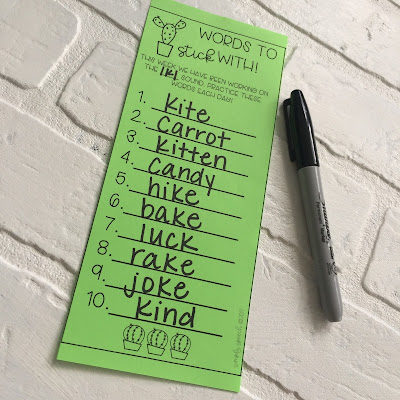 WORDS TO
stick WITH!
THIS WEEK WE HAVE BEEN WORKING ON
THE /k/ SOUND. PRACTICE THESE
WORDS EACH DAY!
1. Kite
2. Carrot
3. Kitten
4. Candy
5. hike
6. bake
7. luck
8. rake
9. joke
10. Kind